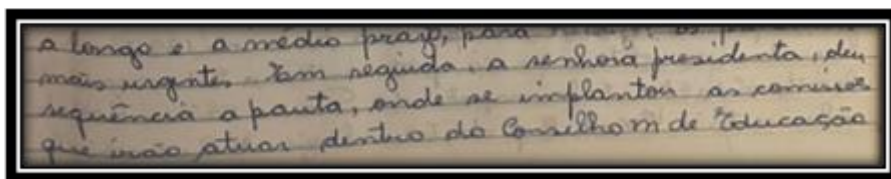 a longo e a médio prazo, para
mais urgente. Em seguida, a senhora presidenta, deu
sequência a pauta, onde se implantou as comissões
que irão atuar dentro do Conselho m de Educação